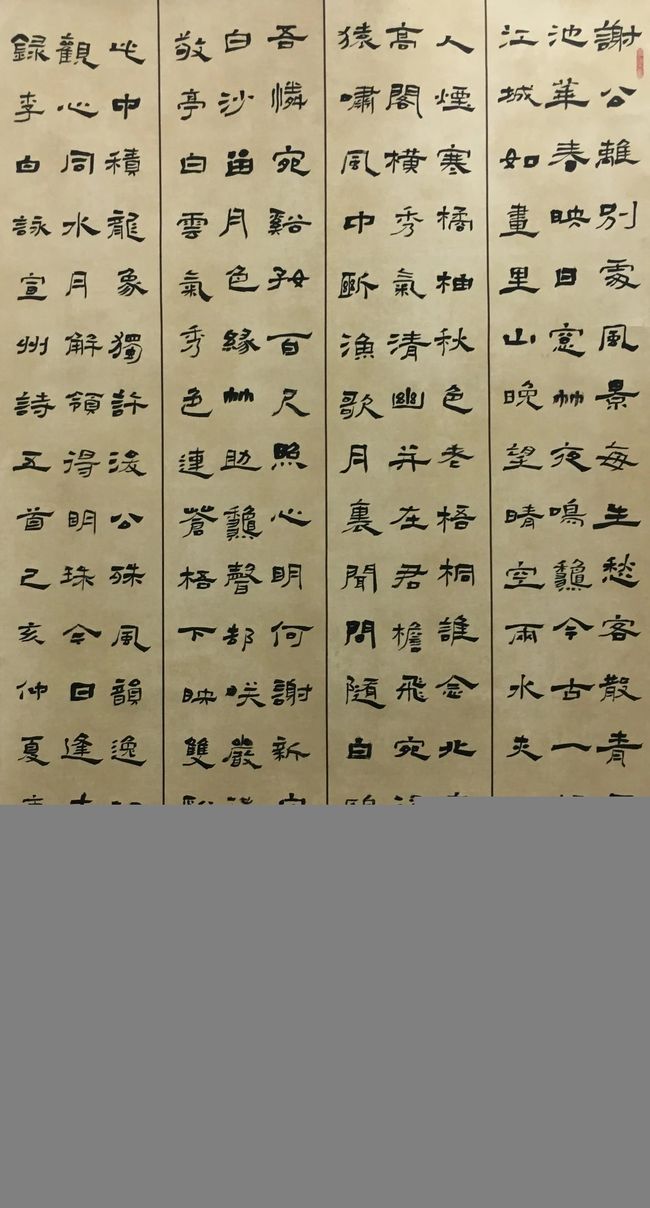 謝公離別處風景每生愁客散青
池華春映日窓竹夜鳴龝今古一
江城如畫里山晚望晴空兩水夾
人煙寒橘柚秋色老梧桐誰念北
高閣橫秀氣清幽并在君檐飛宛
猿嘯風中斷漁歌月裏聞閒隨白
吾憐宛谿好百尺照心明何謝新
白沙留月色綠竹助龝聲却咲嚴
敬亭白雲氣秀色連蒼梧下映雙
此中積龍象獨許浚公殊風韻逸
觀心同水月解領得明珠今日逢
錄李白詠宣州詩五首己亥仲夏